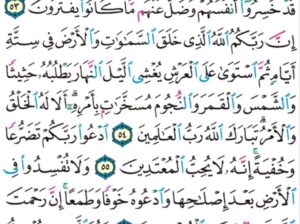 قَدْ خَسِرُوٓا۟ أَنفُسَهُمْ وَضَلَّ عَنْهُم مَّا كَانُوا۟ يَفْتَرُونَ ٥٣
إِنَّ رَبَّكُمُ ٱللَّهُ ٱلَّذِى خَلَقَ ٱلسَّمَٰوَٰتِ وَٱلْأَرْضَ فِى سِتَّةِ
أَيَّامٍ ثُمَّ ٱسْتَوَىٰ عَلَى ٱلْعَرْشِ يُغْشِى ٱلَّيْلَ ٱلنَّهَارَ يَطْلُبُهُۥ حَثِيثًا
وَٱلشَّمْسَ وَٱلْقَمَرَ وَٱلنُّجُومَ مُسَخَّرَٰتٍۭ بِأَمْرِهِۦٓ ۗ أَلَا لَهُ ٱلْخَلْقُ
وَٱلْأَمْرُ ۗ تَبَارَكَ ٱللَّهُ رَبُّ ٱلْعَٰلَمِينَ ٥٤ ٱدْعُوا۟ رَبَّكُمْ تَضَرُّعًا
وَخُفْيَةً ۚ إِنَّهُۥ لَا يُحِبُّ ٱلْمُعْتَدِينَ ٥٥ وَلَا تُفْسِدُوا۟ فِى
ٱلْأَرْضِ بَعْدَ إِصْلَٰحِهَا وَٱدْعُوهُ خَوْفًا وَطَمَعًا ۚ إِنَّ رَحْمَتَ